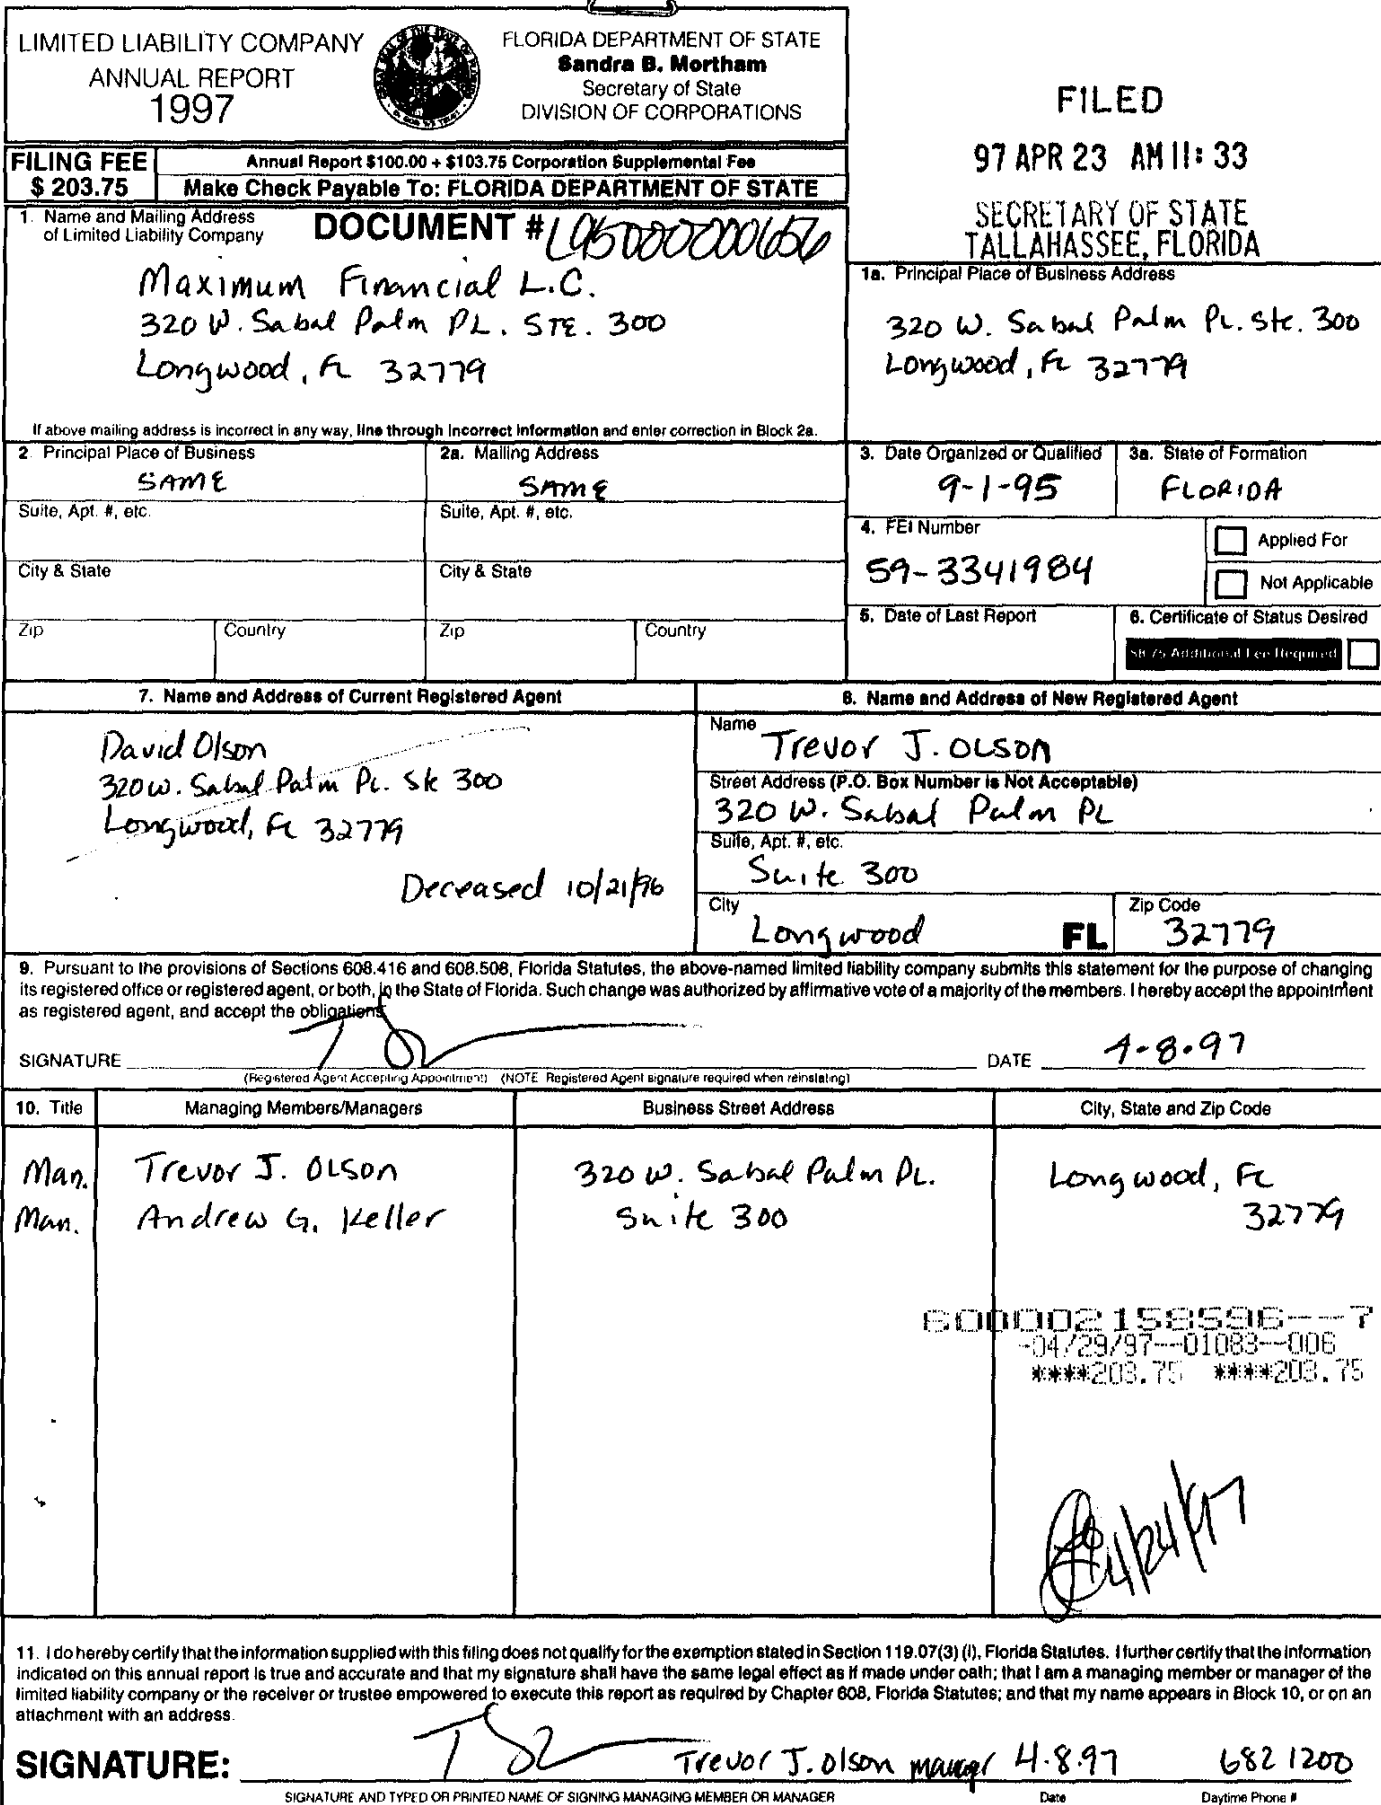 LIMITED LIABILITY COMPANY
ANNUAL REPORT
1997
FLORIDA DEPARTMENT OF STATE
Sandra B. Mortham
Secretary of State
DIVISION OF CORPORATIONS
FILED
97 APR 23 AM 11: 33
SECRETARY OF STATE
TALLAHASSEE, FLORIDA
FILING FEE
$ 203.75
Annual Report $100.00 + $103.75 Corporation Supplemental Fee
Make Check Payable To: FLORIDA DEPARTMENT OF STATE
1. Name and Mailing Address
of Limited Liability Company
DOCUMENT # L95000000656
Maximum Financial L.C.
320 W. Sabal Palm PL. STE. 300
Longwood, FL 32779
If above mailing address is incorrect in any way, line through incorrect information and enter correction in Block 2a.
1a. Principal Place of Business Address
320 W. Sabal Palm PL. Ste. 300
Longwood, FL 32779
2. Principal Place of Business
SAME
2a. Mailing Address
SAME
Suite, Apt. #, etc.
Suite, Apt. #, etc.
City & State
City & State
Zip
Country
Zip
Country
3. Date Organized or Qualified
9-1-95
3a. State of Formation
FLORIDA
4. FEI Number
59-3341984
Applied For
Not Applicable
5. Date of Last Report
6. Certificate of Status Desired
$8.75 Additional Fee Required
7. Name and Address of Current Registered Agent
David Olson
320 W. Sabal Palm PL. Ste 300
Longwood, FL 32779
Deceased 10/21/96
8. Name and Address of New Registered Agent
Name
Trevor J. OLSON
Street Address (P.O. Box Number is Not Acceptable)
320 W. Sabal Palm PL
Suite, Apt. #, etc.
Suite 300
City
Longwood FL
Zip Code
32779
9. Pursuant to the provisions of Sections 608.416 and 608.508, Florida Statutes, the above-named limited liability company submits this statement for the purpose of changing
its registered office or registered agent, or both, in the State of Florida. Such change was authorized by affirmative vote of a majority of the members. I hereby accept the appointment
as registered agent, and accept the obligations.
SIGNATURE
DATE 4-8-97
(Registered Agent Accepting Appointment) (NOTE Registered Agent signature required when reinstating)
10. Title
Managing Members/Managers
Business Street Address
City, State and Zip Code
Man. Trevor J. OLSON 320 W. Sabal Palm PL. Longwood, FL
Man. Andrew G. Keller Suite 300 32779
600002158596--7
-04/29/97--01083--006
****203.75 ****203.75
4/24/97
11. I do hereby certify that the information supplied with this filing does not qualify for the exemption stated in Section 119.07(3) (i), Florida Statutes. I further certify that the information
indicated on this annual report is true and accurate and that my signature shall have the same legal effect as if made under oath; that I am a managing member or manager of the
limited liability company or the receiver or trustee empowered to execute this report as required by Chapter 608, Florida Statutes; and that my name appears in Block 10, or on an
attachment with an address.
SIGNATURE: Trevor J. Olson manager 4-8-97 682 1200
SIGNATURE AND TYPED OR PRINTED NAME OF SIGNING MANAGING MEMBER OR MANAGER
Date
Daytime Phone #